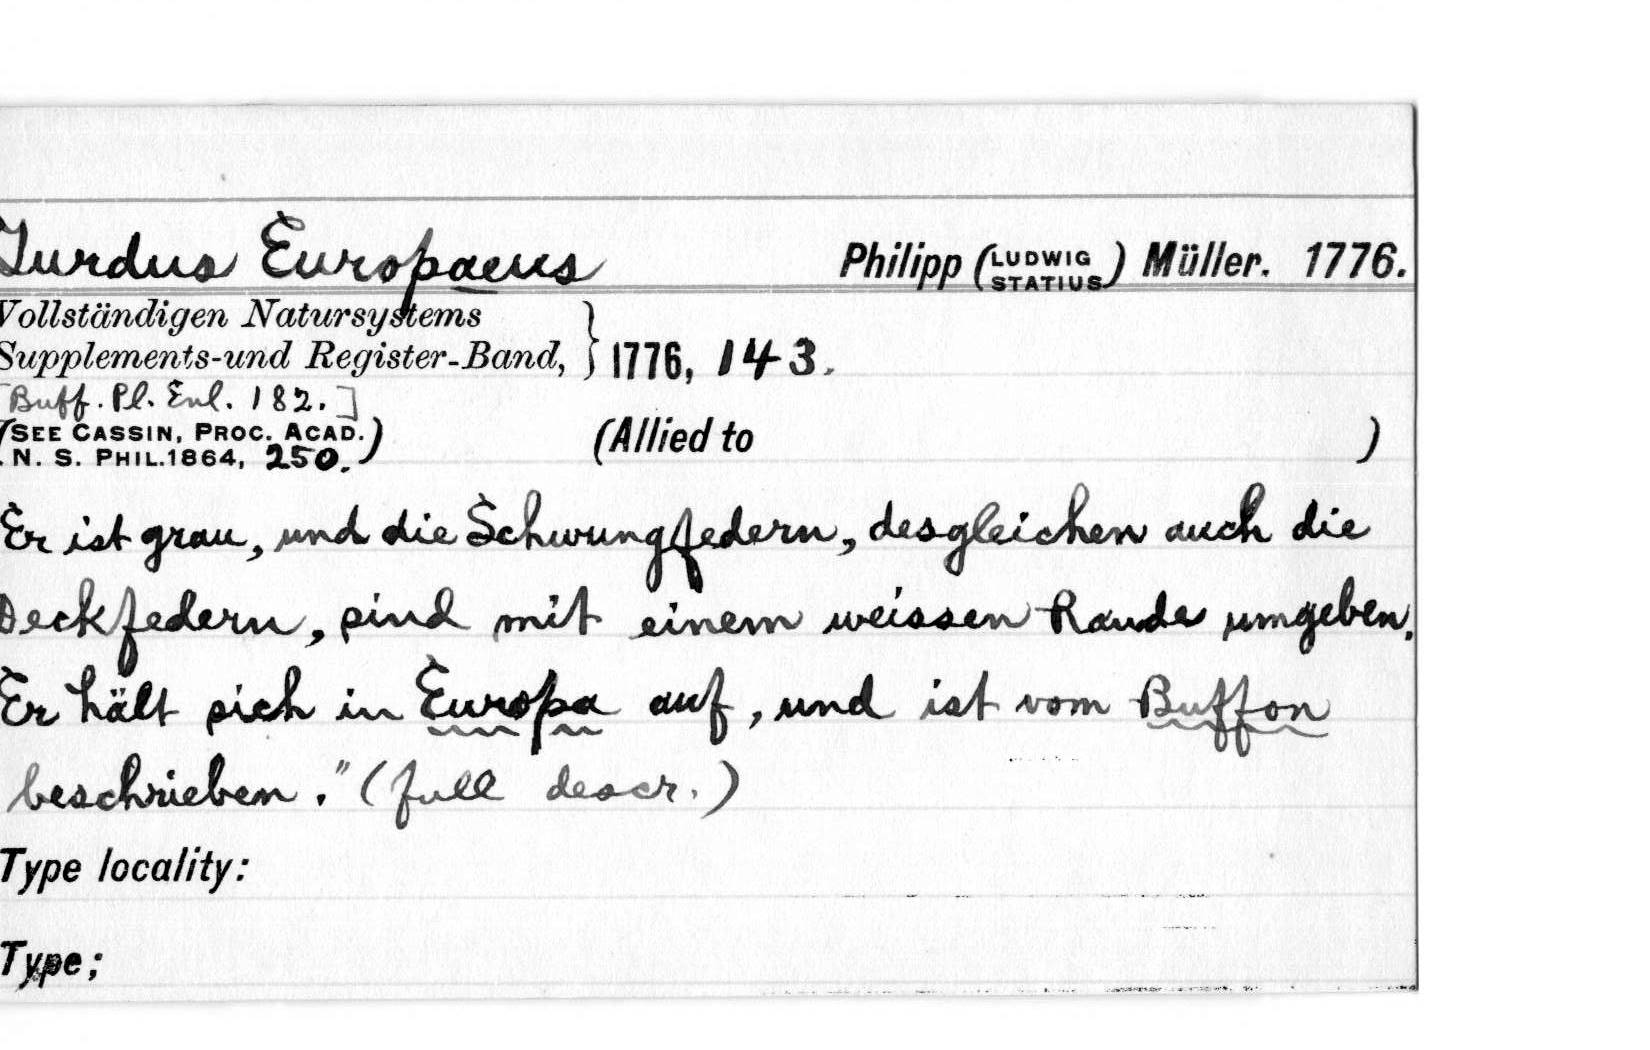 Turdus Europaeus Philipp (LUDWIG STATIUS) Müller. 1776.
Vollständigen Natursystems
Supplements-und Register-Band, } 1776, 143.
[Buff. Pl. Enl. 182.]
(SEE CASSIN, PROC. ACAD.
N. S. PHIL. 1864, 250.) (Allied to )
Er ist grau, und die Schwungfedern, desgleichen auch die
Deckfedern, sind mit einem weissen Rande umgeben.
Er hält sich in Europa auf, und ist vom Buffon
beschrieben." (full descr.)
Type locality:
Type;